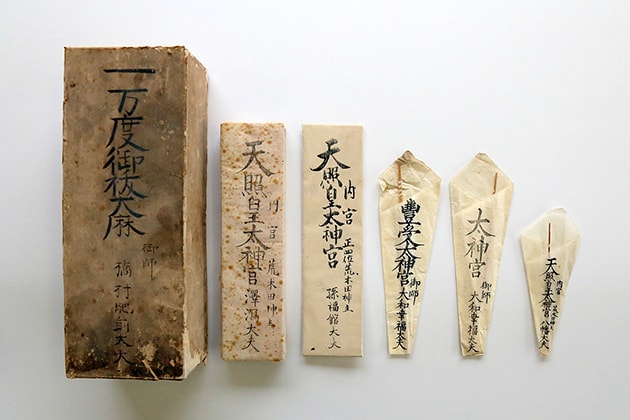 一万度御祓大麻
御師
肥前大夫
天照皇太神宮
内宮
荒木田神主
澤瀉大夫
天照皇太神宮
内宮
正四位荒木田神主
孫福館大夫
豊受太神宮
御師
大和幸福大夫
太神宮
御師
大和幸福大夫
天照皇太神宮
内宮
八幡大夫